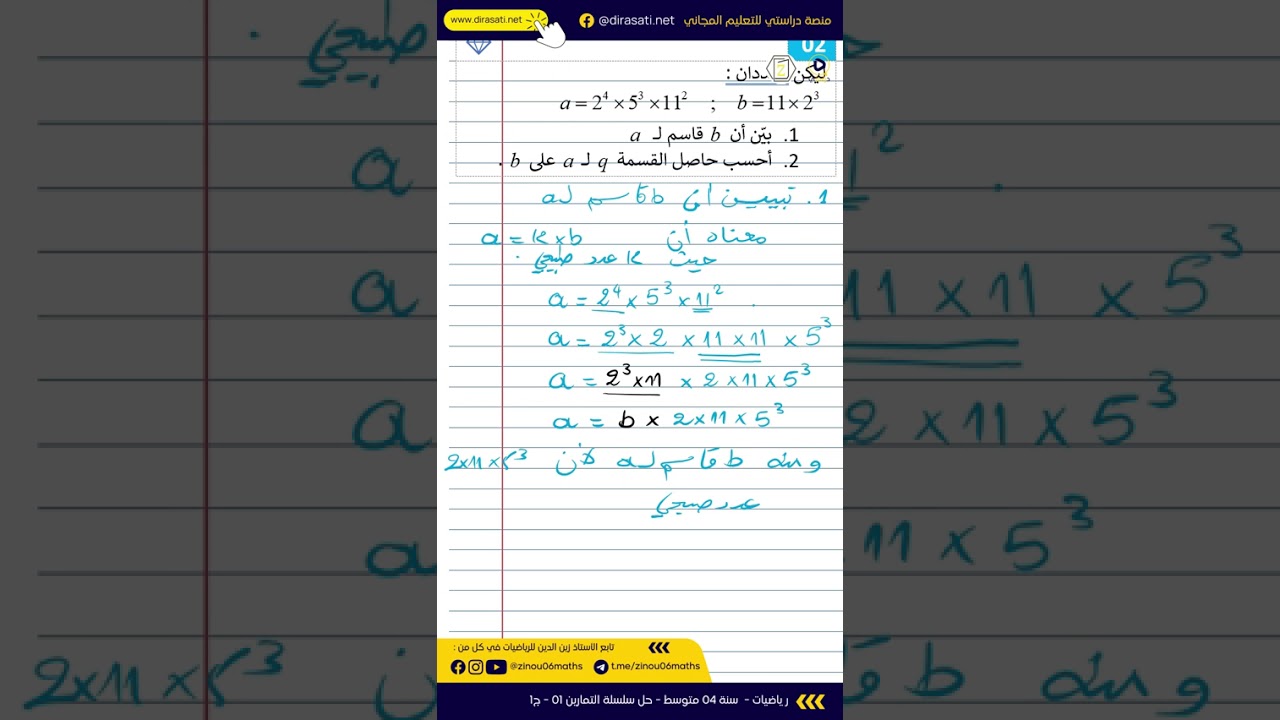 منصة دراستي للتعليم المجاني @dirasati.net www.dirasati.net
02
ليكن ددان :
a = 2⁴ × 5³ × 11² ; b = 11 × 2³
1. بيّن أن b قاسم لـ a
2. أحسب حاصل القسمة q لـ a على b .
1. تبيين أن b قاسم لـ a
معناه أن a = k × b
حيث k عدد طبيعي .
a = 2⁴ × 5³ × 11² .
a = 2³ × 2 × 11 × 11 × 5³
a = 2³ × 11 × 2 × 11 × 5³
a = b × 2 × 11 × 5³
ومنه b قاسم لـ a لأن 2 × 11 × 5³
عدد طبيعي
تابع الاستاذ زين الدين للرياضيات في كل من :
@zinou06maths t.me/zinou06maths
رياضيات - سنة 04 متوسط - حل سلسلة التمارين 01 - ج1